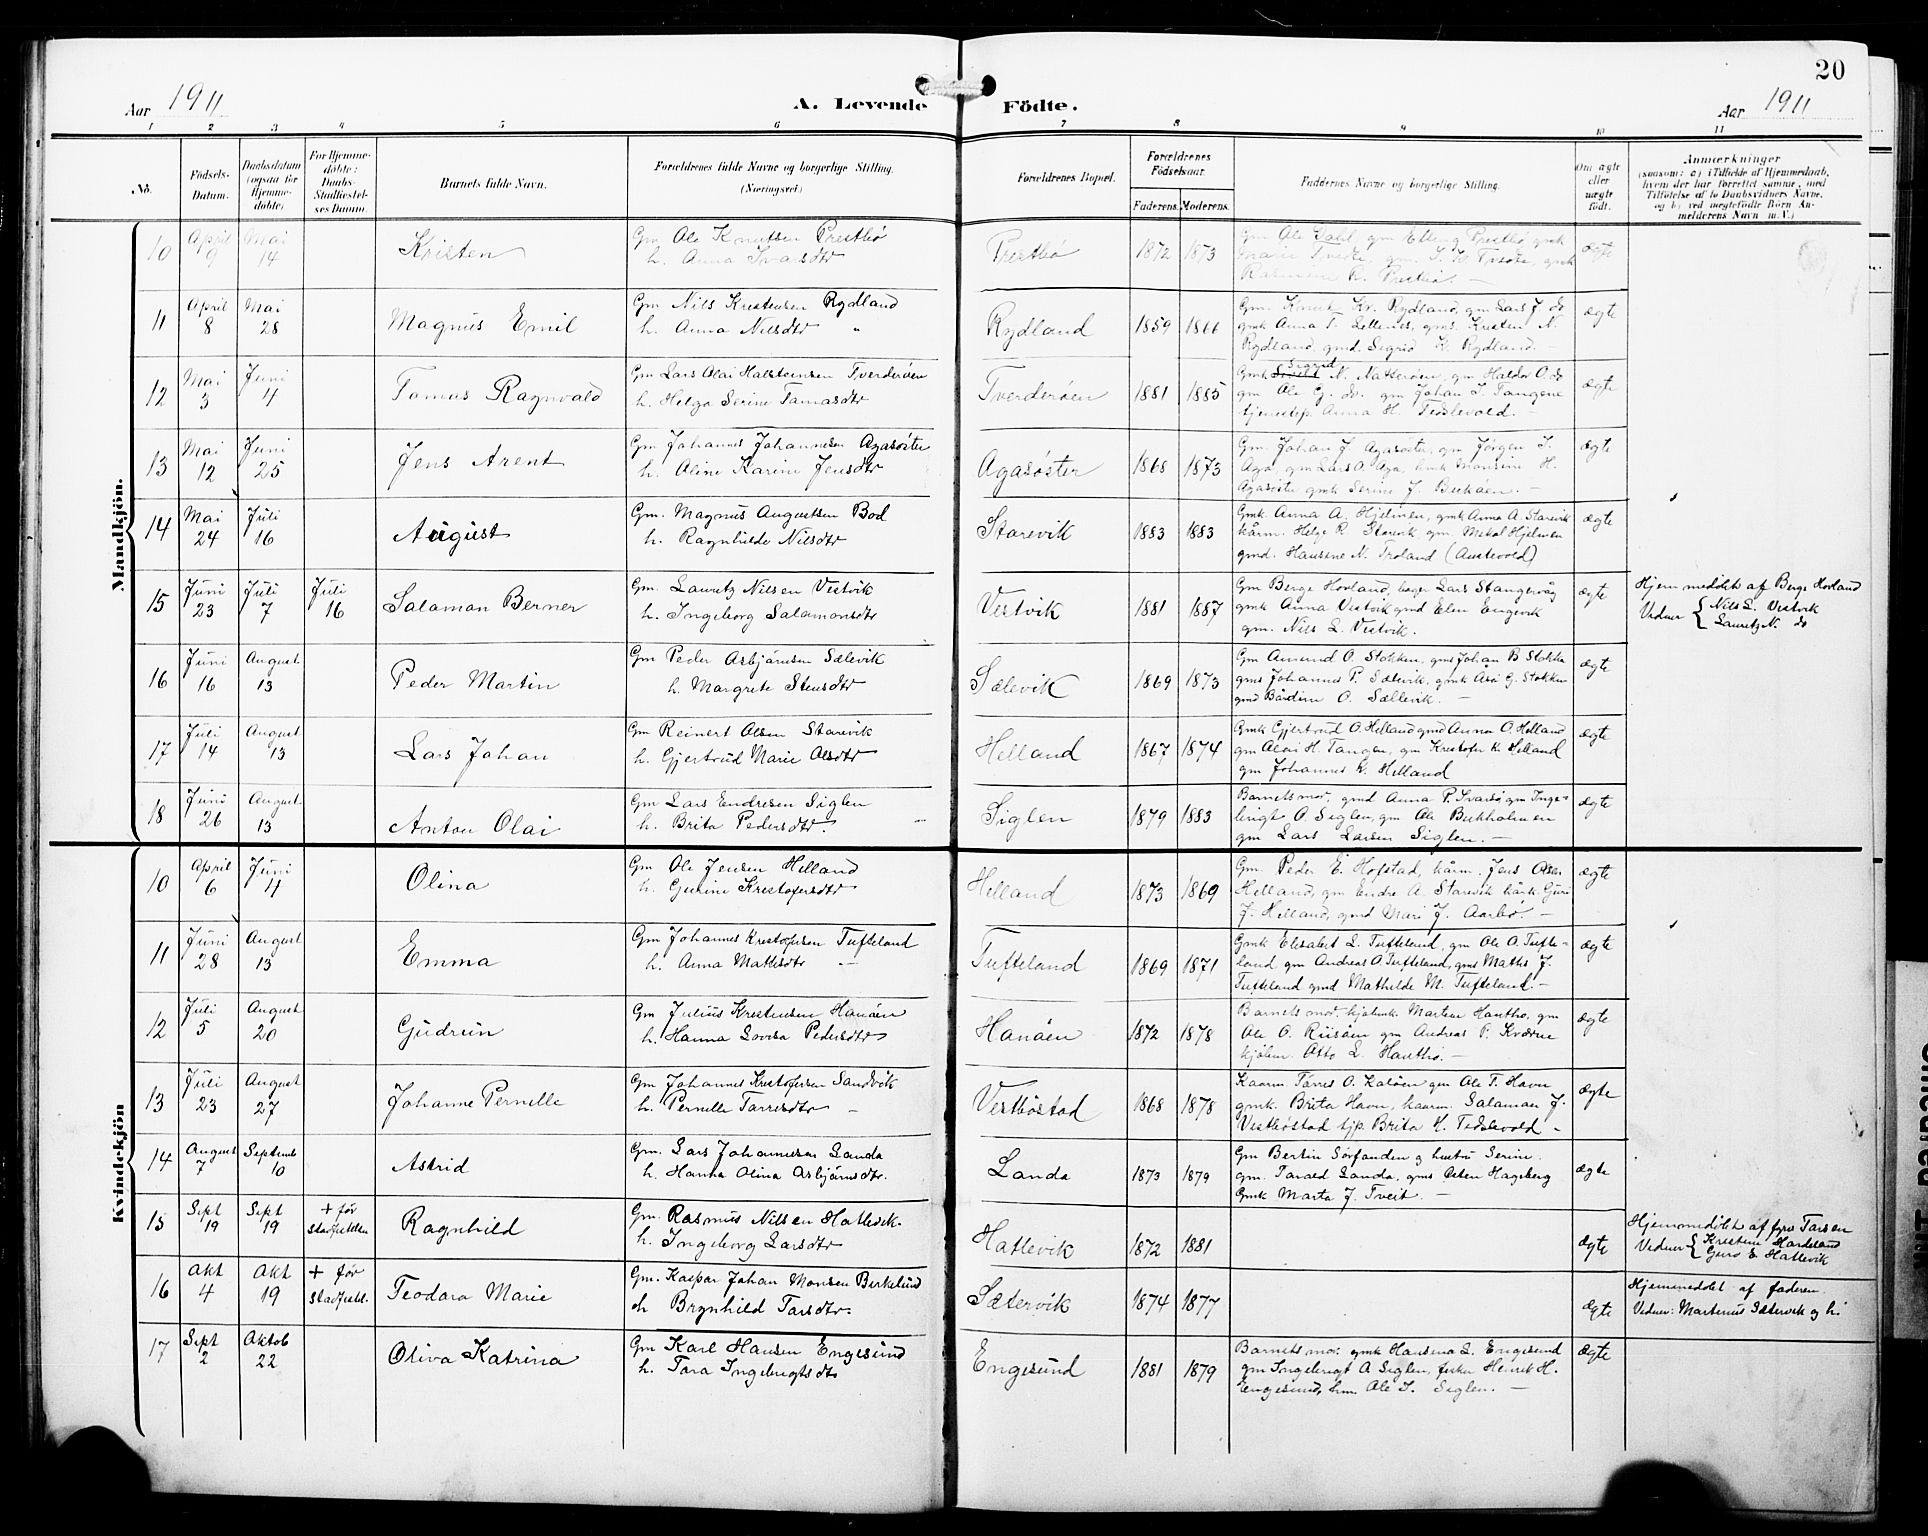 20
Aar 1911 A. Levende Födte. Aar 1911
1 2 3 4 5 6 7 8 9 10 11
No. Födsels-Datum. Daabsdatum (ogsaa för Hjemme-döbte) For Hjemme-döbte: Daabs-Stadfæstel-ses Datum. Barnets fulde Navn. Forældrenes fulde Navne og borgerlige Stilling. (Næringsvei.) Forældrenes Bopæl. Forældrenes Födselsaar. Faderens. Moderens. Faddernes Navne og borgerlige Stilling. Om ægte eller uægte födt. Anmærkninger (saasom: a) i Tilfælde af Hjemmedaab, hvem der har forrettet samme, med Tilföielse af to Daabsvidners Navne, og b) ved uægtefödte Börn An-melderens Navn m. V.)
Mandkjön.
10 April 9 Mai 14 Kristen Gm Ole Knutsen Prestbö
h. Anna Ivarsdtr Prestbö 1872 1873 Gm Ole Dahl, gm Elling Prestbö gmk
Tvedte, gm. Tvedte, gmk
Prestbö. ægte
11 April 8 Mai 28 Magnus Emil Gm Nils Kristensen Rydland
h. Anna Nilsdtr " Rydland 1859 1866 Gm. Knut Kr. Rydland, gm Lars J. do
gmk Anna T. gms. Kristen N.
Rydland, gmd. Sigrid K. Rydland. ægte
12 Mai 3 Juni 4 Tomas Ragnvald Gm Lars Olai Halsteinsen Tverderöen
h. Helga Serine Tomasdtr Tverderöen 1881 1885 Gmk Sigrid N. Natteröen, gm Haldor O. do
gm Ole G. do. gm Johan I. Tangene
tjenestep. Anna H. Tedslevold. ægte
13 Mai 12 Juni 25 Jens Arent Gm Johannes Johannesen Agasöster
h. Aline Karine Jensdtr Agasöster 1868 1873 Gm. Johan J. Agasöster, gm Jörgen I.
Aga, gm Lars O. Aga, Monsine H.
Agasöster gmk Serine J. ægte
14 Mai 24 Juli 16 August Gm. Magnus Augustsen Bod
h. Ragnhilde Nilsdtr Starevik 1883 1883 Gmk Anna A. Hjelmen, gmk Anna A. Starevik
kårm. Helge R. Starevik, gm. Mikal Hjelmen
gmd. Hansene N. Troland (Austevold) ægte
15 Juni 23 Juli 7 Juli 16 Salaman Berner Gm. Lauritz Nilsen Vestvik
h. Ingeborg Salamonsdtr Vestvik 1881 1887 Gm Berge Hovland, Lars Stangervåg
gmk Anna Vestvik gmd Elen Engevik
gm. Nils L. Vestvik. ægte Hjemmedöbt af Berge Hovland
Vidner { Nils L. Vestvik
Lauritz N. do
16 Juni 16 August 13 Peder Martin Gm Peder Asbjörnsen Sælevik
h. Margrete Stensdtr Sælevik 1869 1873 Gm Amund O. Stokken, gms Johan B Stokke
gms Johannes P. Sælevik, gmk Åsa G. Stokken
gmd Bårdine O. Sællevik. ægte
17 Juli 14 August 13 Lars Johan Gm Reinert Olsen Starevik
h. Gjertrud Marie Olsdtr Helland 1867 1874 Gmk Gjertrud O. Helland gmd Anna O. Helland
gm Olai H. Tangen, gm Kristofer K. Helland
gm Johannes K. Helland ægte
18 Juni 26 August 13 Anton Olai Gm Lars Endresen Siglen
h. Brita Pedersdtr. Siglen 1879 1883 Barnets mor, gmd Anna P. Svartö gm Inge-
brigt O. Siglen, gm Ole Birkholmen
gm Lars Larsen Siglen. ægte
Kvindekjön
10 April 6 Juni 4 Olina Gm Ole Jensen Helland
h. Gurine Kristofersdtr Helland 1873 1869 Gm. Peder E. Hofstad, kårm. Jens Olsen
Helland, gm Endre A. Starevik kårk Guri
J. Helland, gmd Mari J. Aarbö. ægte
11 Juni 28 August 13 Emma Gm Johannes Kristofersen Tufteland
h. Anna Mattisdtr Tufteland 1869 1871 Gmk Elisabet L. Tufteland, gm Ole A. Tufte-
land gm Andreas A Tufteland, gms Mathis J.
Tufteland gmd Mathilde M. Tufteland. ægte
12 Juli 5 August 20 Gudrun Gm Julius Kristensen Hanöen
h. Hanna Lovisa Pedersdtr Hanöen 1872 1878 Barnets mor Martine Hantho, gm
Ole O. Risöen gm Andreas P. Kværne
kjöbm. Otto L. Hantho. ægte
13 Juli 23 August 27 Johanne Pernelle Gm Johannes Kristofersen Sandvik
h. Pernelle Tarresdtr Vestböstad 1868 1878 Kaarm. Tårres O. Kalöen gm Ole T. Havn
gmk. Brita Havn, kaarm. Salaman J.
Vestböstad tjp. Brita K. Tedslevold ægte
14 August 7 Septemb 10 Astrid Gm. Lars Johannesen Landa
h. Hanna Olina Asbjörnsdtr. Landa 1873 1879 Gm Bertin Sörfanden g hustru Serine.
gm. Tarald Landa, gms Østen Hageberg
Gmk Marta J. Tveit. ægte
15 Sept 19 Sept 19 + för stadfestelsen Ragnhild Gm. Rasmus Nilsen Hatlevik.
h. Ingeborg Larsdtr Hatlevik 1872 1881 ægte Hjemmedöbt af Tarsen
Vidner { Kristine Hardeland
Guro E. Hatlevik
16 Okt 4 Okt 19 + för stadfestel. Teodora Marie Gm. Kaspar Johan Monsen Birkelund
h Brynhild Tarsdtr. Sætervik 1874 1877 ægte Hjemmedöbt af faderen.
Vidner: Martinus Sætervik og h.
17 Sept 2 Oktob 22 Oliva Katrina Gm Karl Hansen Engesund
h. Tara Ingebrigtsdtr Engesund 1881 1879 Barnets mor. gmk Hansina S. Engesund
gm Ingebrigt A Siglen, fisker Henrik H.
Engesund, hm Ole I. Siglen. ægte